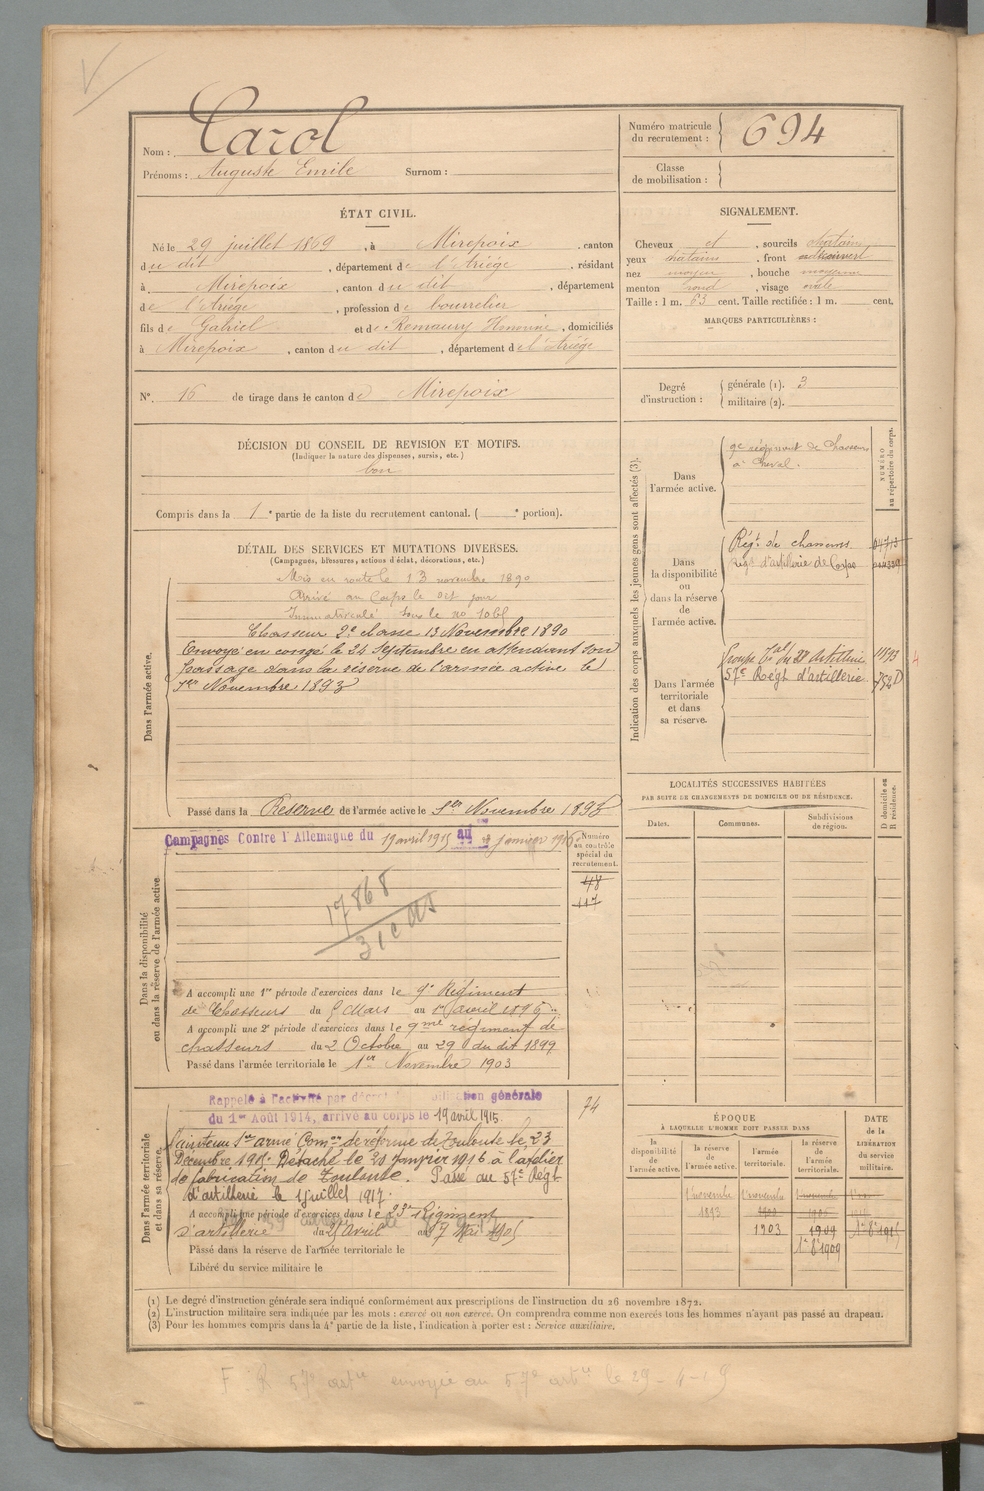 Nom : Carol
Prénoms : Auguste Emile Surnom :
Numéro matricule du recrutement : 694
Classe de mobilisation :
ÉTAT CIVIL.
Né le 29 juillet 1869, à Mirepoix, canton
du dit, département de l'Ariége, résidant
à Mirepoix, canton du dit, département
de l'Ariége, profession de bourrelier
fils de Gabriel et de Remaury Honorine, domiciliés
à Mirepoix, canton du dit, département de l'Ariége
SIGNALEMENT.
Cheveux et, sourcils chatain
yeux chatains, front
nez moyen, bouche moyenne
menton rond, visage ovale
Taille : 1 m. 63 cent. Taille rectifiée : 1 m. cent.
MARQUES PARTICULIÈRES :
N°. 16 de tirage dans le canton de Mirepoix
Degré d'instruction : générale (1). 3
militaire (2).
DÉCISION DU CONSEIL DE REVISION ET MOTIFS.
(Indiquer la nature des dispenses, sursis, etc.)
bon
Compris dans la 1e partie de la liste du recrutement cantonal. ( e portion).
DÉTAIL DES SERVICES ET MUTATIONS DIVERSES.
(Campagnes, blessures, actions d'éclat, décorations, etc.)
Dans l'armée active.
Mis en route le 13 novembre 1890
Arrivé au Corps le dit jour
Immatriculé sous le no
Chasseur 2e classe 13 Novembre 1890
Envoyé en congé le 24 Septembre en attendant son
passage dans la réserve de l'armée active le
1er Novembre 1893
Passé dans la Réserve de l'armée active le 1er Novembre 1893
Indication des corps auxquels les jeunes gens sont affectés (3).
NUMÉRO au répertoire du corps.
Dans l'armée active.
9e régiment de Chasseurs
à Cheval.
Dans la disponibilité ou dans la réserve de l'armée active.
Régt de chasseurs
Régt d'artillerie de Corps
Dans l'armée territoriale et dans sa réserve.
Groupe tal du artillerie 1893
57e Régt d'artillerie 752 D
LOCALITÉS SUCCESSIVES HABITÉES
PAR SUITE DE CHANGEMENTS DE DOMICILE OU DE RÉSIDENCE.
Dates. Communes. Subdivisions de région. D domicile ou R résidence.
Dans la disponibilité ou dans la réserve de l'armée active
Campagnes Contre l'Allemagne du 19 avril 1915 au janvier 1916
Numéro au contrôle spécial du recrutement.
48
117
17868
A accompli une 1re période d'exercices dans le 9e Régiment
de Chasseurs du Mars au avril 1896
A accompli une 2e période d'exercices dans le 9me régiment de
chasseurs du 2 Octobre au 29 du dit 1899
Passé dans l'armée territoriale le 1er Novembre 1903
Dans l'armée territoriale et dans sa réserve.
Rappelé à l'activité par décret générale
du 1er Août 1914, arrivé au corps le 19 avril 1915.
74
Maintenu Ser armé Comon de réforme de Toulouse le 23
Décembre 1915. Détaché le 21 Janvier 1916 à l'atelier
de fabrication de Toulouse. Passé au 57e Régt
d'artillerie le 1 Juillet 1917.
A accompli une période d'exercices dans le 23e Régiment
d'artillerie du Avril au 7 Mai 1905
Passé dans la réserve de l'armée territoriale le
Libéré du service militaire le
ÉPOQUE
À LAQUELLE L'HOMME DOIT PASSER DANS
DATE de la LIBÉRATION du service militaire.
la disponibilité de l'armée active. la réserve de l'armée active. l'armée territoriale. la réserve de l'armée territoriale.
1 novembre 1 novembre 1 novembre
1893 1900
1903 1909
1er 8bre 1909
(1) Le degré d'instruction générale sera indiqué conformément aux prescriptions de l'instruction du 26 novembre 1872.
(2) L'instruction militaire sera indiquée par les mots : exercé ou non exercé. On comprendra comme non exercés tous les hommes n'ayant pas passé au drapeau.
(3) Pour les hommes compris dans la 4e partie de la liste, l'indication à porter est : Service auxiliaire.
57e artie envoyée au 57e artie le 29-4-19